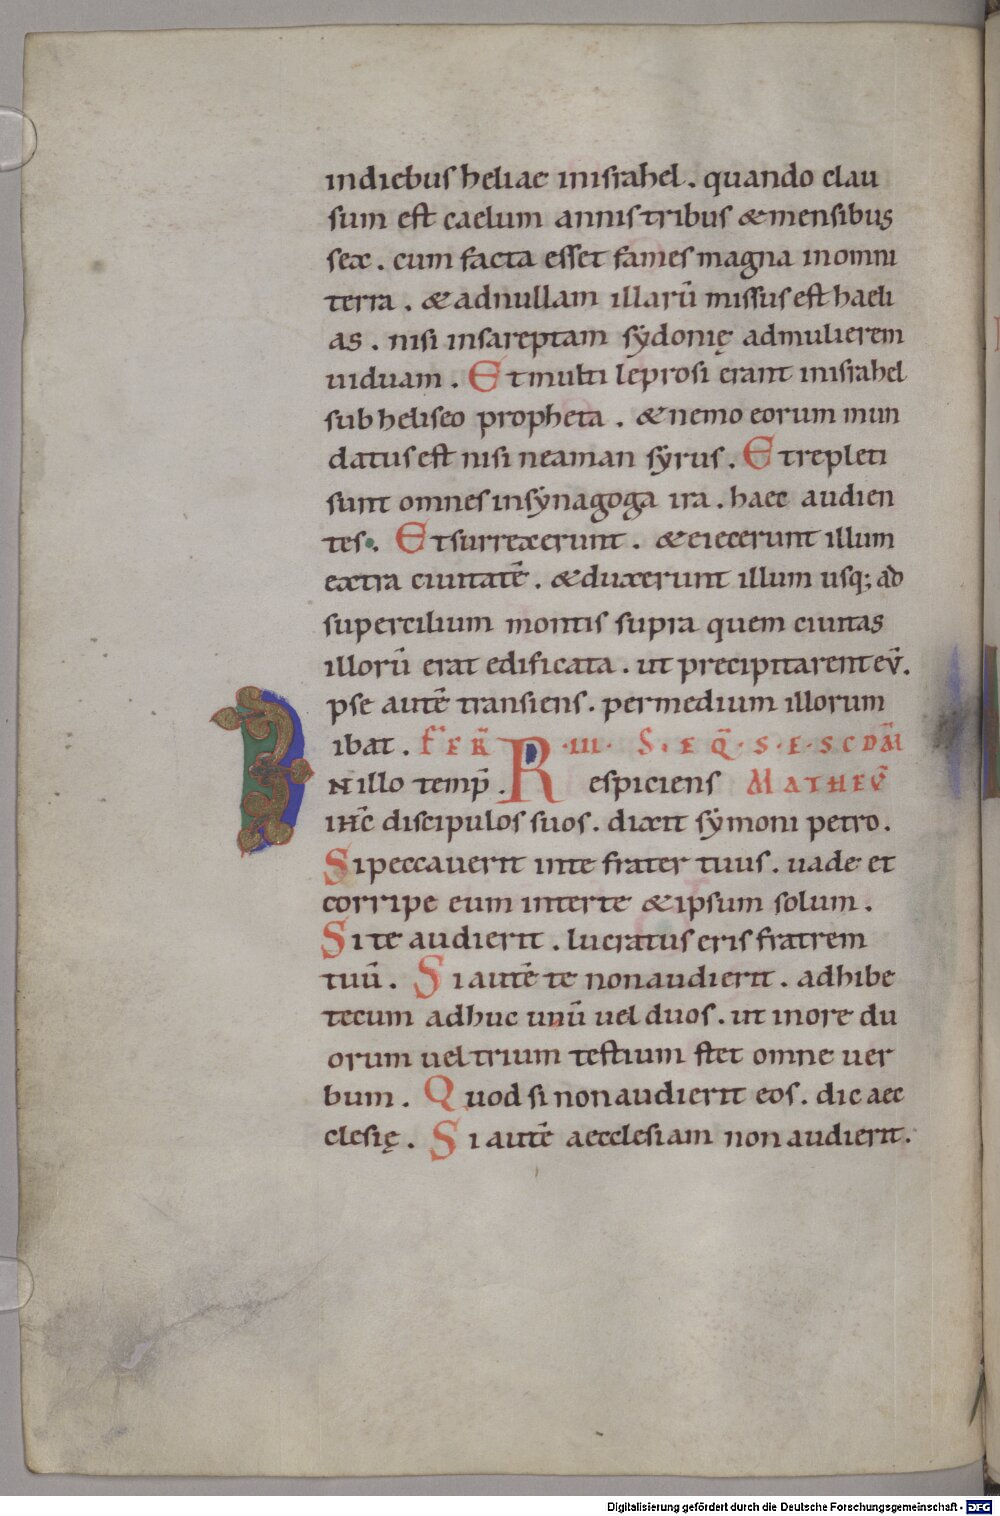 indiebus heliae inisrahel. quando clau
sum est caelum annis tribus & mensibus
sex. cum facta esset fames magna inomni
terra. & adnullam illarū missus est haeli
as. nisi insareptam sydonię admulierem
uiduam. Et multi leprosi erant inisrahel
sub heliseo propheta. & nemo eorum mun
datus est nisi neaman syrus. Et repleti
sunt omnes insynagoga ira. haec audien
tes. Et surrexerunt. & eiecerunt illum
extra ciuitatē. & duxerunt illum usq; ad
supercilium montis supra quem ciuitas
illorū erat edificata. ut precipitarent eū.
Ipse autē transiens. permedium illorum
ibat. FER̄ ·III· S·EQ̄·S·E·SCDM̄
IN illo temp̄. Respiciens MATHEV̄
ihc̄ discipulos suos. dixit symoni petro.
Si peccauerit inte frater tuus. uade et
corripe eum interte & ipsum solum.
Si te audierit. lucratus eris fratrem
tuū. Si autē te non audierit. adhibe
tecum adhuc unū uel duos. ut inore du
orum uel trium testium stet omne uer
bum. Quod si non audierit eos. dic aec
clesię. Si autē aecclesiam non audierit.
Digitalisierung gefördert durch die Deutsche Forschungsgemeinschaft - DFG